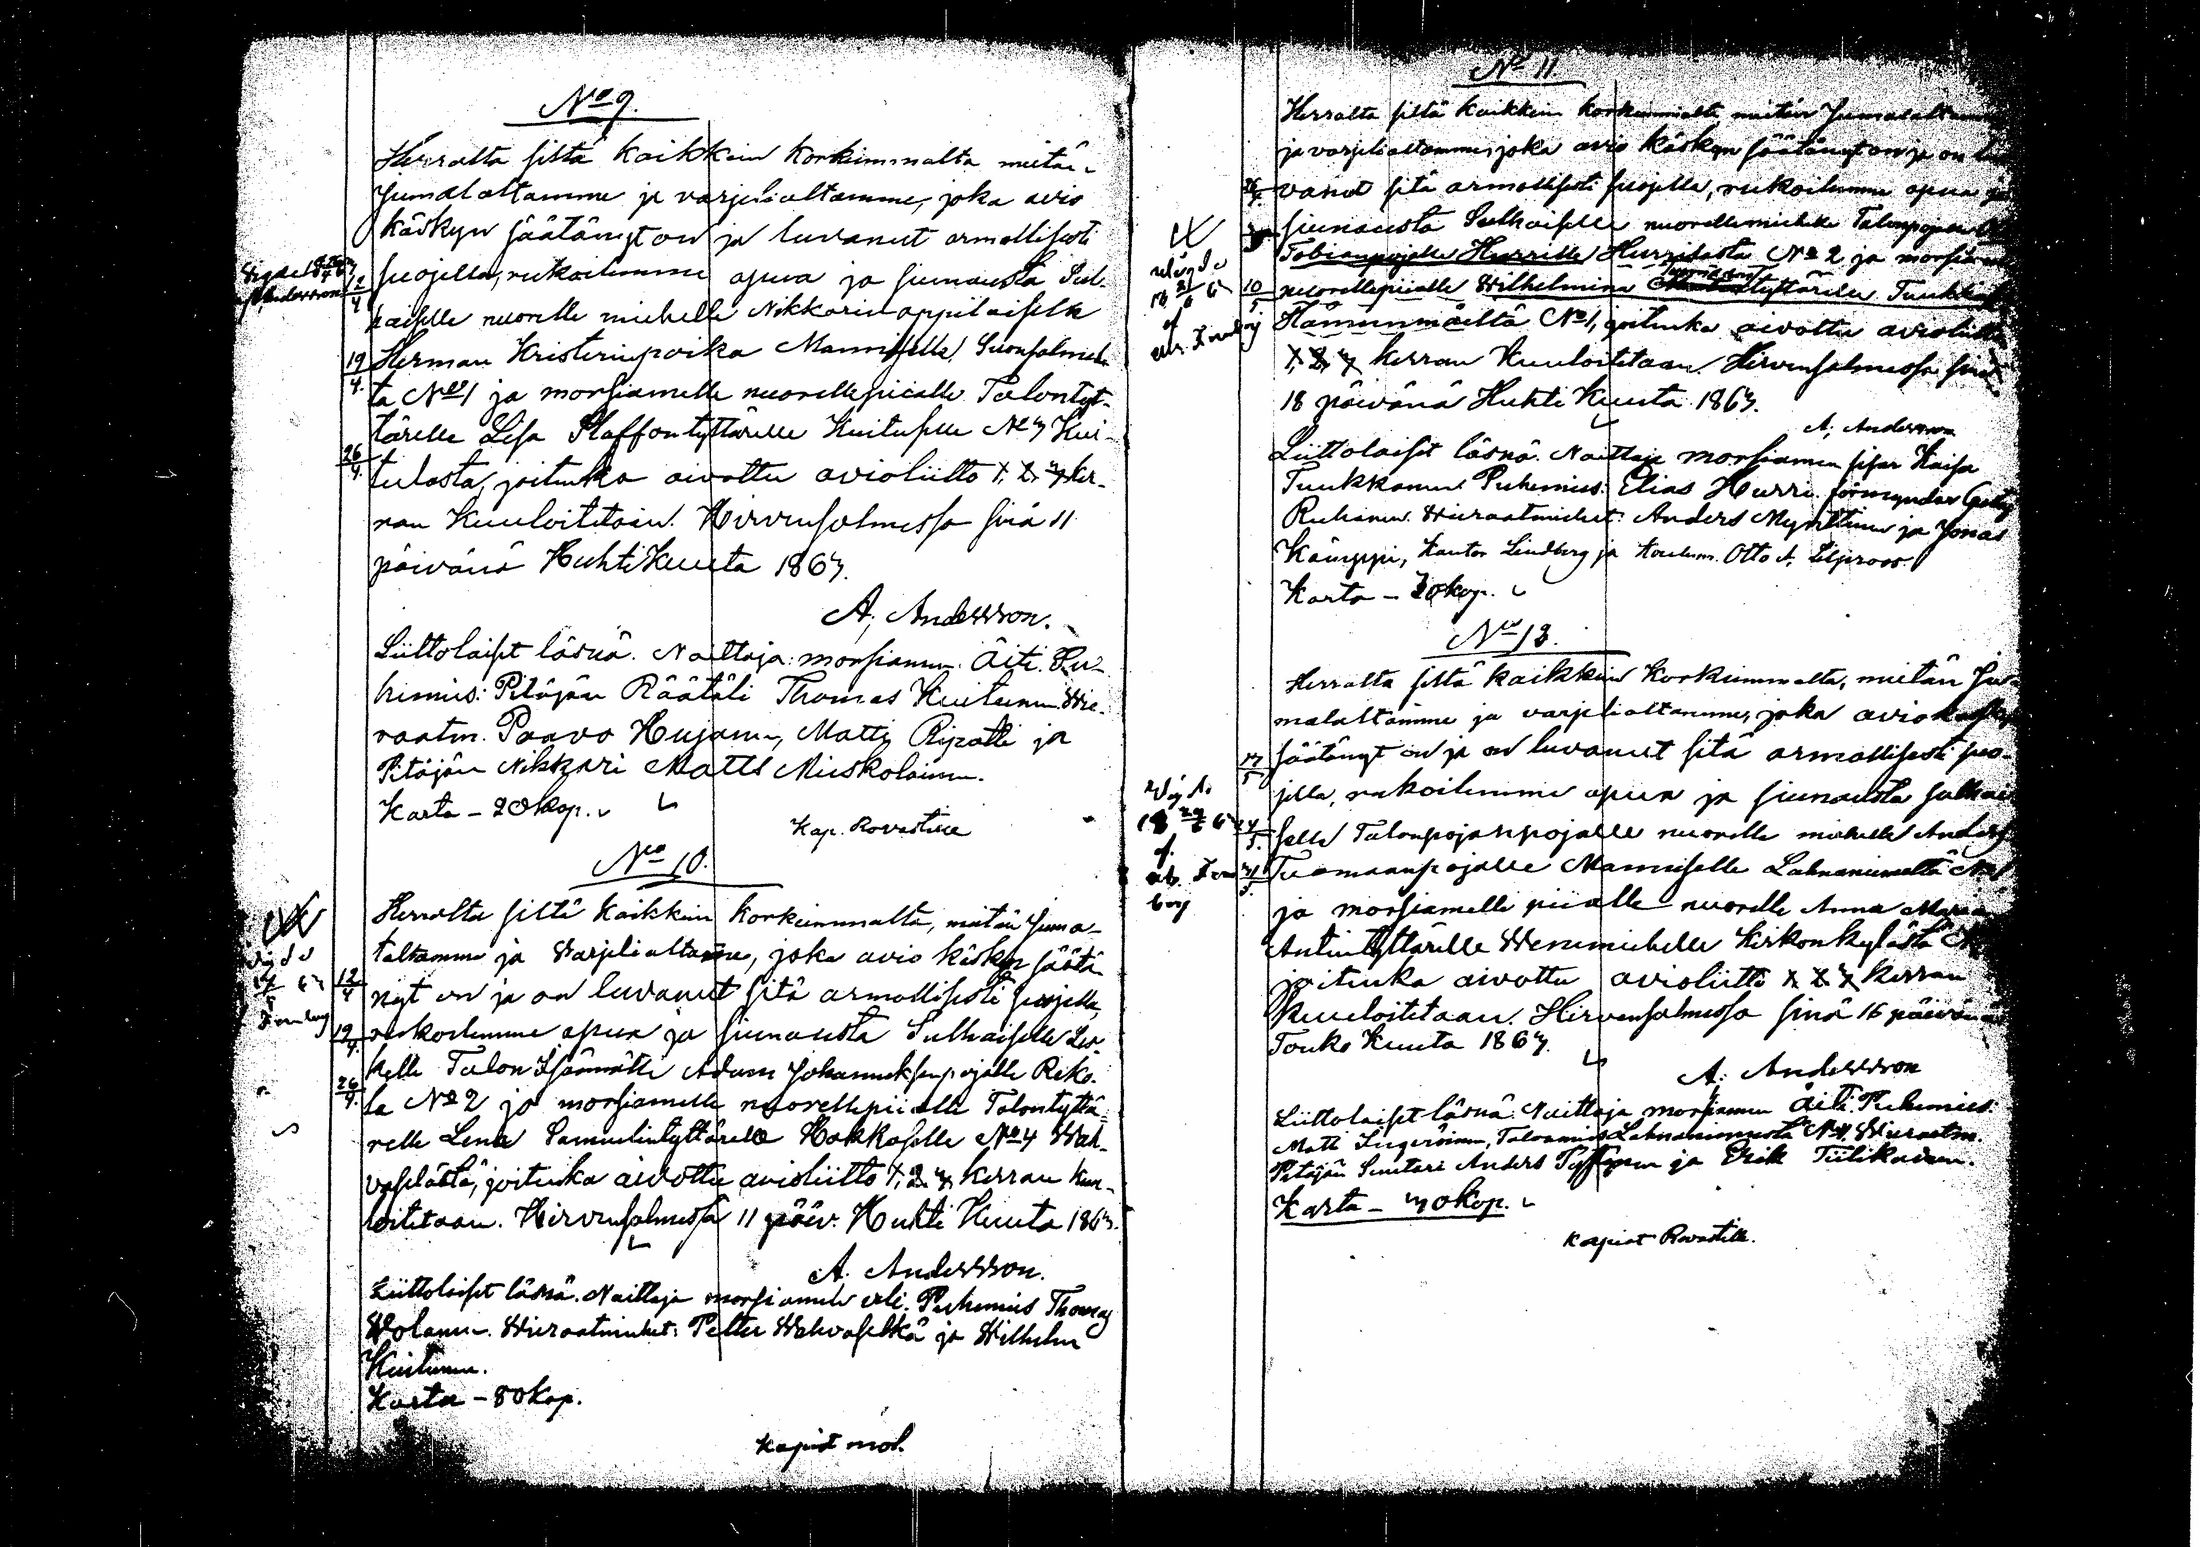 No 9.
Herralta siltä kaikkein korkeimmalta meitän
Jumalaltamme ja varjelialtamme, joka avio
käskyn säätänyt on ja luvanut armollisesti
suojella, rukoilemme apua ja siunausta Sul-
haiselle nuorelle miehelle Nikkarin oppilaiselle
Herman Kristerinpoika Manniselle Suonsalmel-
ta No 1 ja morsiamelle nuorellepiialle Talontyt-
tärelle Lisa Staffontyttärelle Kuituselle No 3 Kui-
tulasta, joitenka aivottu avioliitto 1. 2. 3 ker-
ran Kuuloitetaan. Hirvensalmessa sinä 11
päivänä HuhtiKuuta 1863.
A. Andersson.
12/4
19/4.
26/4.
Liittolaiset läsnä. Naittaja: morsiamen Äiti. Pu-
hemies: Pitäjän Räätäli Thomas Kuitunen Wie-
raatm. Paavo Hujanen, Matts Ripatti ja
Pitäjän Nikkari Matts Mieskolainen.
Karta - 20 kop.
Kap. Rovastille
No 10.
Herralta siltä kaikkein korkeimmalta, meitän Juma-
laltamme ja Warjelialtamme, joka avio käskyn säätä-
nyt on ja on luvanut sitä armollisesti suojella,
rukoilemme apua ja siunausta Sulhaiselle Les-
kelle Talon Isännälle Adam Johanneksenpojalle Riko-
la No 2 ja morsiamelle nuorellepiialle Talontyttä-
relle Lena Samuelintyttärelle Hokkaselle No 4 Wah-
vaselästä, joitenka aivottu avioliitto 1, 2. 3. kerran kuu-
loitetaan. Hirvensalmessa 11 päiv. Huhti Kuuta 1863.
A. Andersson.
12/4
19/4.
26/4.
Liittolaiset läsnä. Naittaja morsiamen veli. Puhemies Thomas
Wolanen. Wieraatmiehet: Petter Wahvaselkä ja Wilhelm
Kuitunen.
Karta - 80 kop.
No 11.
Herralta siltä kaikkein korkeimmalta, meitän Jumalaltamme
ja varjelialtamme, joka avio käskyn säätänyt on ja on lu-
vanut sitä armollisesti suojella, rukoilemme apua ja
siunausta Sulhaiselle nuorellemiehelle Talonpojan
Tobianpojalle Hurrille Hurrilasta No 2 ja morsiamelle
nuorellepiialle Wilhelmina tyttärelle Tuukkas
Hämeenmäeltä No 1, joitenka aivottu avioliitto
1. 2. 3 kerran Kuuloitetaan. Hirvensalmessa sinä
18 päivänä Huhti Kuuta 1863.
A. Andersson
26/4
10/5
Liittolaiset läsnä. Naittaja morsiamen sisar Kaisa
Tuukkanen Puhemies: Elias Hurri. förmyndar
Ruhanen. Wieraatmiehet: Anders Mynttinen ja Jonas
Kämppi, Kantor Lindberg ja Koulum. Otto A. Liljroos.
Karta - 30 kop.
No 13.
Herralta siltä kaikkein korkeimmalta, meitän Ju-
malaltamme ja varjelialtamme, joka aviokäskyn
säätänyt on ja on luvanut sitä armollisesti suo-
jella, rukoilemme apua ja siunausta sulhai-
selle Talonpojanpojalle nuorelle miehelle Anders
Tuomaanpojalle Manniselle Lahnaniemeltä No 1
ja morsiamelle piialle nuorelle Anna Maria
Antintyttärelle Wenemiehelle Kirkonkylästä
joitenka aivottu avioliitto 1 2 3 kerran
Kuuloitetaan. Hirvensalmessa sinä 16 päivänä
Touko Kuuta 1863.
A. Andersson
17/5
24/5.
31/5.
Liittolaiset läsnä. Naittaja morsiamen äiti. Puhemies:
Matti Ingeröinen, Talonmies Lahnaniemestä No 1. Wieraatm.
Pitäjän Suutari Anders ja Erik Tiilikainen.
Karta - 30 kop.
kapiat Rovastille.